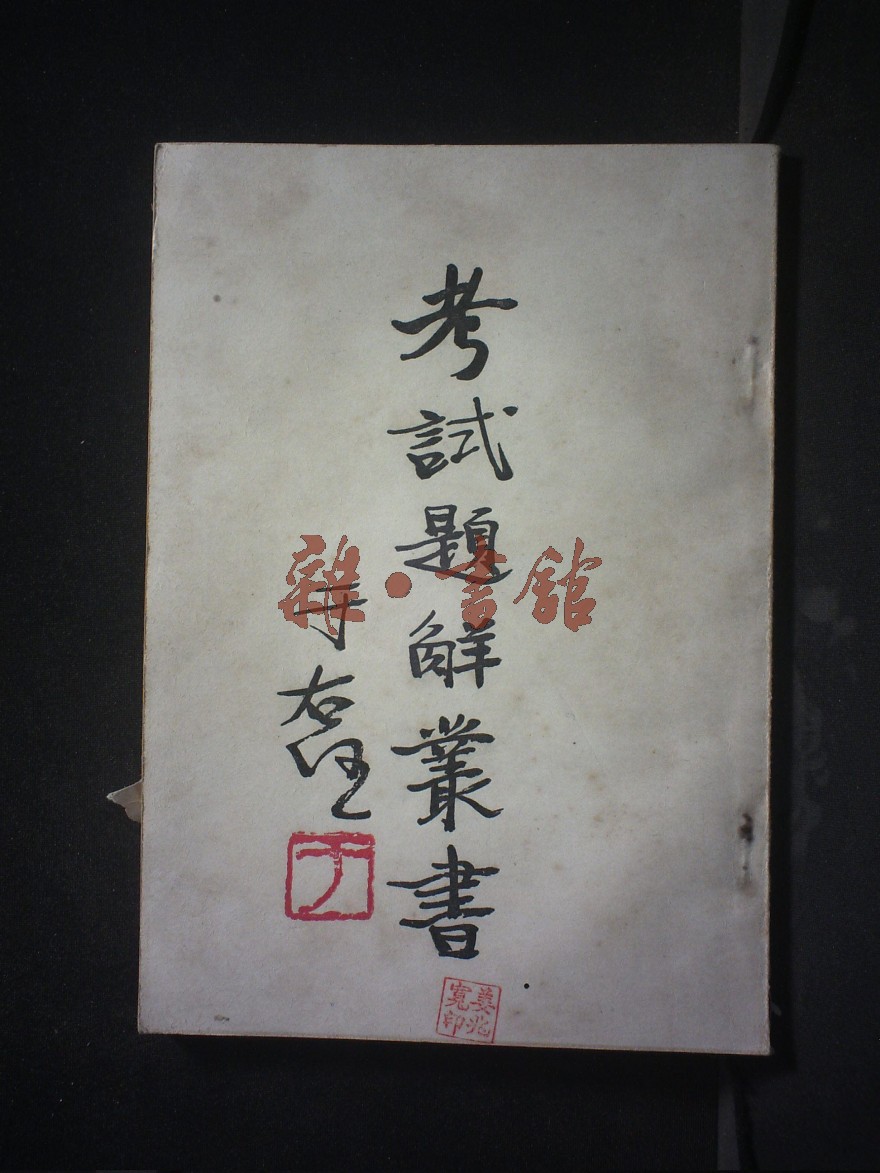 考試題解叢書
于右任
于
姜兆寬印
雜·書館